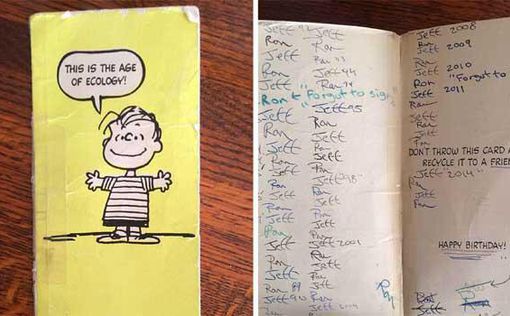 THIS IS THE AGE
OF ECOLOGY!
Jeff 92 Jeff
Ron Ron
Jeff Ron 93
Ron Jeff 94
Jeff Ron
Ron "Forgot to sign"
Jeff Jeff 95
Ron Ron
Jeff Jeff
Ron Ron
Jeff Jeff
Ron Ron
Jeff Jeff "98"
Ron Ron
Jeff Jeff
Ron Ron
Jeff Jeff
Ron Ron
Jeff Jeff 2001
Ron Ron
Jeff Jeff
Ron 89 Jeff
Jeff 90 Ron
Jeff 2008
Ron 2009
Jeff
Ron 2010
Jeff "Forgot to
Ron 2011
Jeff
Ron
Jeff
Ron
DON'T THROW THIS CARD A
RECYCLE IT TO A FRIE
Jeff "2014"
Ron
Jeff
Ron
HAPPY BIRTHDAY!
Ron